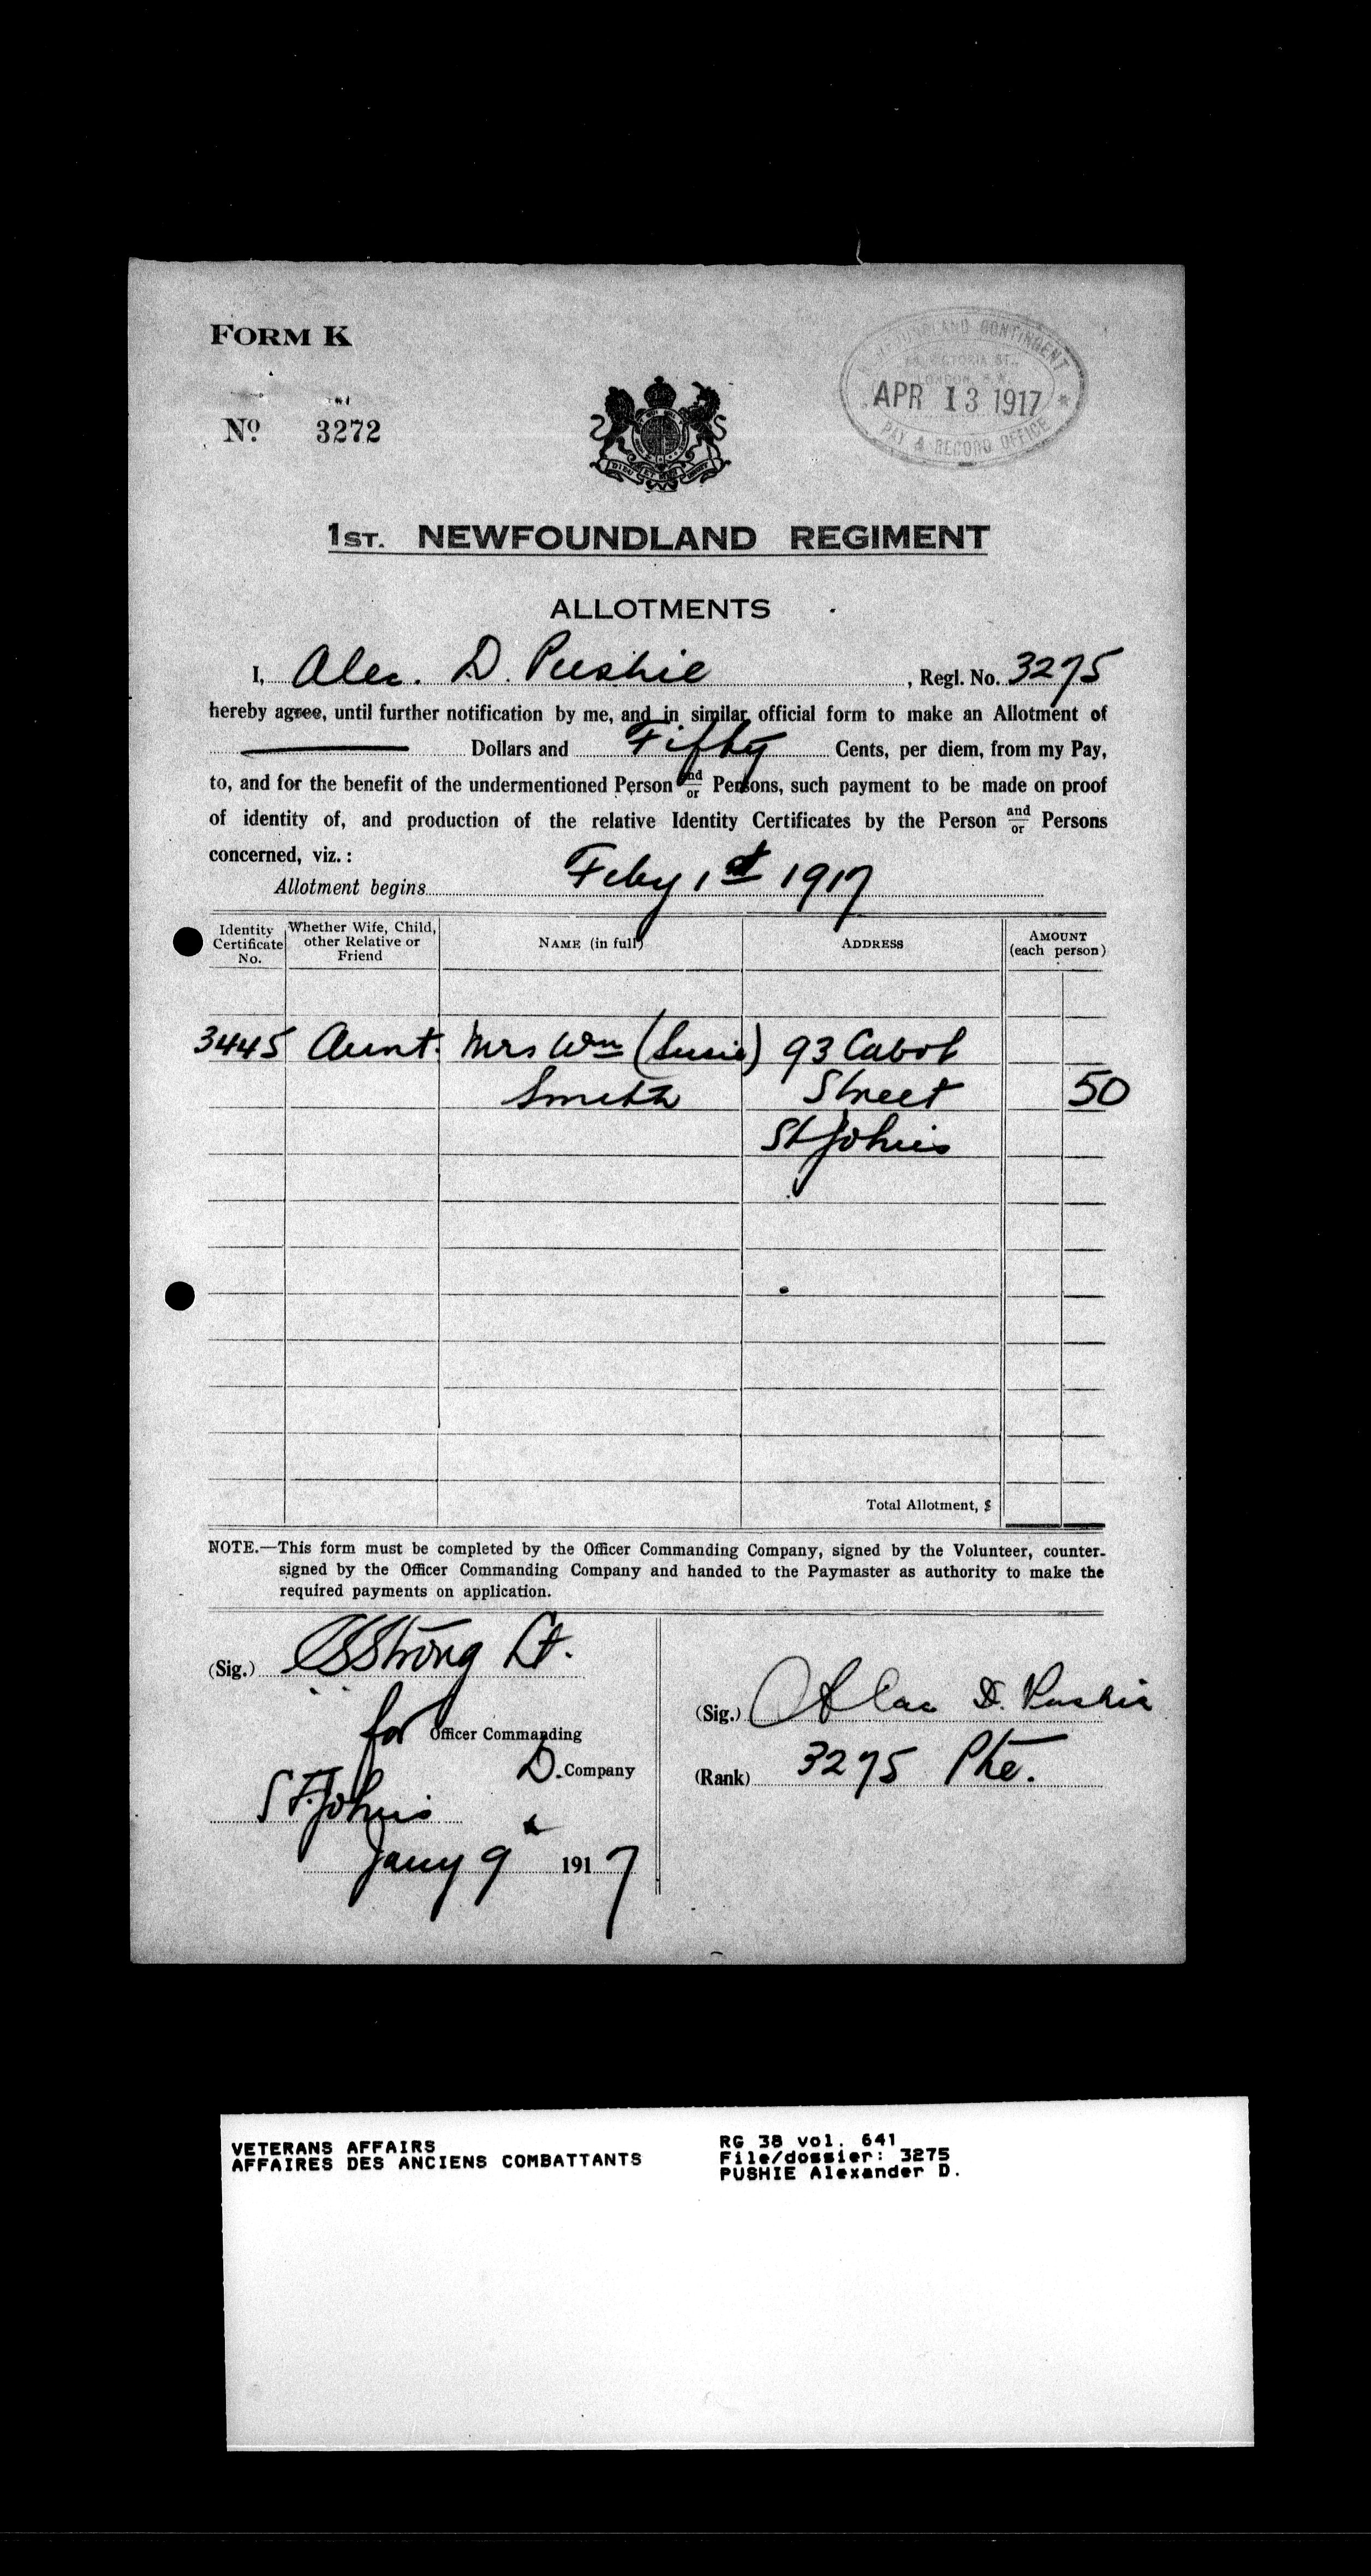 FORM K
NEWFOUNDLAND CONTINGENT
VICTORIA ST.,
LONDON, S.W.
APR 13 1917
PAY & RECORD OFFICE
No. 3272
DIEU ET MON DROIT
1ST. NEWFOUNDLAND REGIMENT
ALLOTMENTS
I, Alec. D. Pushie, Regl. No. 3275
hereby agree, until further notification by me, and in similar official form to make an Allotment of
Dollars and Fifty Cents, per diem, from my Pay,
to, and for the benefit of the undermentioned Person and/or Persons, such payment to be made on proof
of identity of, and production of the relative Identity Certificates by the Person and/or Persons
concerned, viz.:
Allotment begins Feby 1st 1917
Identity Certificate No. Whether Wife, Child, other Relative or Friend NAME (in full) ADDRESS AMOUNT (each person)
3445 Aunt. Mrs Wm (Susie) 93 Cabot
Smith Street 50
St Johns
Total Allotment, $
NOTE.—This form must be completed by the Officer Commanding Company, signed by the Volunteer, counter-
signed by the Officer Commanding Company and handed to the Paymaster as authority to make the
required payments on application.
(Sig.) Strong Lt.
for Officer Commanding
D. Company
St. Johns
Jany 9th 1917
(Sig.) Alec D. Pushie
(Rank) 3275 Pte.
VETERANS AFFAIRS
AFFAIRES DES ANCIENS COMBATTANTS
RG 38 vol. 641
File/dossier: 3275
PUSHIE Alexander D.